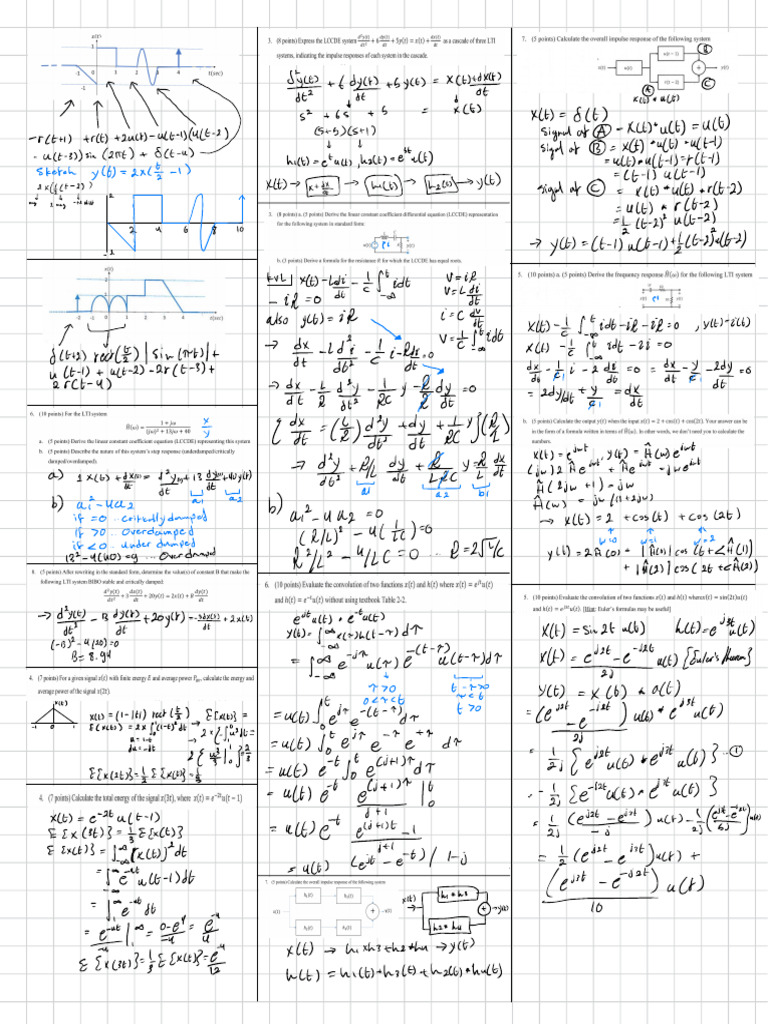 x(t)
1
-1
1
2
3
4
t(sec)
-1
-r(t+1) + r(t) + 2u(t) - u(t-1)(u(t-2)
- u(t-3)) sin (2πt) + δ(t-4)
Sketch y(t) = 2x(t/2 - 1)
2
2
4
6
8
10
-2
x(t)
-2
-1
0
1
2
3
4
t(sec)
δ(t+2) rect(t/2) |sin(πt)| +
u(t-1) + u(t-2) - 2r(t-3) +
2r(t-4)
6. (10 points) For the LTI system
Ĥ(ω) = (1 + jω) / ((jω)² + 13jω + 40)
Y
X
a. (5 points) Derive the linear constant coefficient equation (LCCDE) representing this system
b. (5 points) Describe the nature of this system's step response (underdamped/critically
damped/overdamped).
b) a1² - 4a2
if = 0 .. critically damped
if > 0 .. overdamped
if < 0 .. under damped
13² - 4(40) = 9 ... Over damped
8. (5 points) After rewriting in the standard form, determine the value(s) of constant B that make the
following LTI system BIBO stable and critically damped:
→ d²y(t)/dt² - B dy(t)/dt + 20y(t) = -3dx(t)/dt + 2x(t)
(-B)² - 4(20) = 0
B = 8.94
4. (7 points) For a given signal x(t) with finite energy E and average power Pav, calculate the energy and
average power of the signal x(2t).
x(t)
-1
0
1
x(t) = (1-|t|) rect(t/2)
E{x(t)} = 2 x ∫(1-t)² dt
u = 1-t
du = -dt
→ E{x(t)} =
2 x {∫ u² dt =
2{u³/3 |} = 2/3
E{x(2t)} = 1/2 E{x(t)} = 1/3
4. (7 points) Calculate the total energy of the signal x(3t), where x(t) = e^{-2t}u(t - 1)
x(t) = e^{-2t} u(t-1)
E{x(3t)} = 1/3 E{x(t)}
E{x(t)} = ∫_{-∞}^{∞} (x(t))² dt
= ∫_{-∞}^{∞} e^{-4t} u(t-1) dt
= ∫_1^∞ e^{-4t} dt
= e^{-4t}/-4 |_1^∞ = (0 - e^{-4})/-4 = e^{-4}/4
E{x(3t)} = 1/3 E{x(t)} = e^{-4}/12
3. (8 points) Express the LCCDE system d²y(t)/dt² + 6 dy(t)/dt + 5y(t) = x(t) + dx(t)/dt as a cascade of three LTI
systems, indicating the impulse responses of each system in the cascade.
d²y(t)/dt² + 6 dy(t)/dt + 5y(t) = x(t) + dx(t)/dt
s² + 6s + 5 = x(t)
(s+5)(s+1)
x(t) → [x + dx/dt] → [h1(t)] → [h2(t)] → y(t)
3. (8 points) a. (5 points) Derive the linear constant coefficient differential equation (LCCDE) representation
for the following system in standard form:
b. (3 points) Derive a formula for the resistance R for which the LCCDE has equal roots.
KVL x(t) - L di/dt - 1/C ∫_{-∞}^t i dt
- iR = 0
also y(t) = iR
V = iR
V = L di/dt
i = C dv/dt
V = 1/C ∫_{-∞}^t i dt
→ dx/dt - L d²i/dt² - 1/C i - R di/dt = 0
→ dx/dt - L/R d²y/dt² - 1/RC y - R/R dy/dt = 0
{dx/dt = (L/R) d²y/dt² + dy/dt + 1/RC y}(R/L)
→ d²y/dt² + R/L dy/dt + R/LRC y = R/L dx/dt
a1
a2
b1
b) a1² - 4a2 = 0
(R/L)² - 4(1/LC) = 0
R²/L² - 4/LC = 0 .. R = 2√L/C
6. (10 points) Evaluate the convolution of two functions x(t) and h(t) where x(t) = e^{jt}u(t)
and h(t) = e^{-t}u(t) without using textbook Table 2-2.
e^{jt} u(t) * e^{-t} u(t)
y(t) = ∫_{-∞}^{∞} x(τ) h(t-τ) dτ
= ∫_{-∞}^{∞} e^{jτ} u(τ) e^{-(t-τ)} u(t-τ) dτ
τ > 0
t - τ > 0
0 < τ < t
τ < t
t > 0
= u(t) ∫_0^t e^{jτ} e^{-(t-τ)} dτ
= u(t) ∫_0^t e^{jτ} e^{-t} e^{+τ} dτ
= u(t) e^{-t} ∫_0^t e^{(j+1)τ} dτ
= u(t) e^{-t} e^{(j+1)τ}/(j+1) |_0^t
= u(t) e^{-t} (e^{(j+1)t} - 1)/(j+1)
= u(t) (e^{jt} - e^{-t}) / 1-j
7. (5 points) Calculate the overall impulse response of the following system
h₁(t)
h₃(t)
h₂(t)
h₄(t)
x(t) →
h1 * h3
h2 * h4
→ y(t)
x(t) → h1*h3 + h2*h4 → y(t)
h(t) = h1(t)*h3(t) + h2(t)*h4(t)
7. (5 points) Calculate the overall impulse response of the following system
B
x(t)
u(t)
u(t - 1)
r(t - 2)
y(t)
A
C
x(t) * u(t)
x(t) = δ(t)
signal at A - x(t) * u(t) = u(t)
signal at B = x(t) * u(t) * u(t-1)
= u(t) * u(t-1) = r(t-1)
= (t-1) u(t-1)
signal at C = x(t) * u(t) * r(t-2)
= u(t) * r(t-2)
= 1/2 (t-2)² u(t-2)
→ y(t) = (t-1) u(t-1) + 1/2 (t-2)² u(t-2)
5. (10 points) a. (5 points) Derive the frequency response Ĥ(ω) for the following LTI system
x(t) - 1/C ∫_{-∞}^t i dt - iR - iR = 0 , y(t) = i(t)
x(t) - 1/C ∫_{-∞}^t i dt - 2i = 0
dx/dt - i/C - 2 di/dt = 0 = dx/dt - y/C - 2dy/dt
= 2dy/dt + y/C = dx/dt
b. (5 points) Calculate the output y(t) when the input x(t) = 2 + cos(t) + cos(2t). Your answer can be
in the form of a formula written in terms of Ĥ(ω). In other words, we don't need you to calculate the
numbers.
x(t) = e^{jωt}, y(t) = Ĥ(ω) e^{jωt}
(jω) 2 Ĥ e^{jωt} + Ĥ e^{jωt} = jω e^{jωt}
Ĥ (2jω + 1) = jω
Ĥ(ω) = jω / (1+2jω)
→ x(t) = 2 + cos(t) + cos(2t)
ω=0
ω=1
ω=2
y(t) = 2Ĥ(0) + |Ĥ(1)| cos(t + ∠Ĥ(1))
+ |Ĥ(2)| cos(2t + ∠Ĥ(2))
5. (10 points) Evaluate the convolution of two functions x(t) and h(t) where x(t) = sin(2t)u(t)
and h(t) = e^{j3t}u(t). [Hint: Euler's formulas may be useful]
x(t) = sin2t u(t) h(t) = e^{j3t} u(t)
x(t) = (e^{j2t} - e^{-j2t})/2j u(t) {Euler's theorem}
= (e^{j2t} - e^{-j2t})/2j u(t) * e^{j3t} u(t)
= 1/2j {e^{j2t} u(t) * e^{j3t} u(t)} - ①
- 1/2j {e^{-j2t} u(t) * e^{j3t} u(t)}
= 1/2j (e^{j2t} - e^{j3t})/-j u(t) - 1/2j (e^{j3t} - e^{-j2t})/5j u(t)
= 1/2 (e^{j2t} - e^{j3t}) u(t) +
(e^{j3t} - e^{-j2t})/10 u(t)